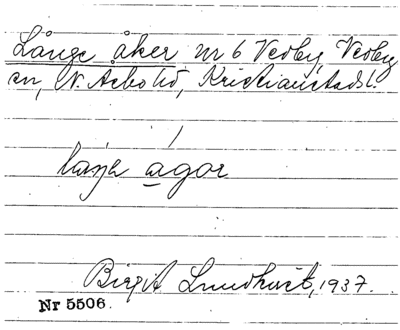 Långe åker nr 6 Vedby, Vedby
sn, N. Åsbo hd, Kristianstads l.
Birgit Lundkvist, 1937.
Nr 5506.